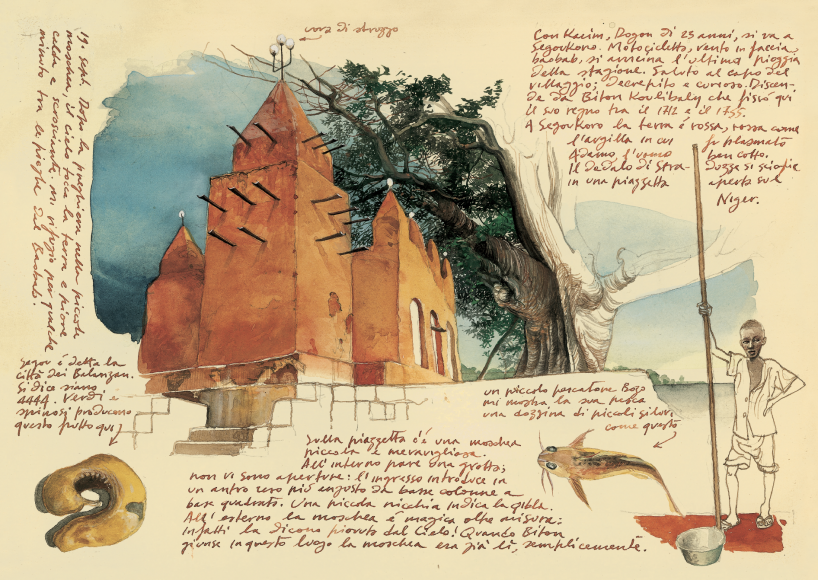 uova di struzzo
Con Karim, Dogon di 25 anni, si va a
Segoukoro. Motocicletta, vento in faccia,
baobab, si avvicina l'ultima pioggia
della stagione. Saluto al capo del
villaggio; decrepito e curioso. Discen-
de da Biton Koulibaly che fissò qui
il suo regno tra il 1712 e il 1755.
A Segoukoro la terra è rossa, rossa come
l'argilla in cui fu plasmato
Adamo, l'uomo ben cotto.
Il dedalo di stra- dozze si scioglie
in una piazzetta aperta sul
Niger.
19. sett. Dopo la preghiera nella piccola
moschea, il cielo tocca la terra e piove
calda e scrosciante, mi rifugio per qualche
minuto tra le pieghe del Baobab!
Segou è detta la
città dei Balanzan.
Si dice siano
4444. Verdi e
spinosi producono
questo frutto qui
un piccolo pescatore Bozo
mi mostra la sua pesca
una dozzina di piccoli siluri
come questo
Sulla piazzetta c'è una moschea
piccola e meravigliosa.
All'interno pare una grotta;
non vi sono aperture: l'ingresso introduce in
un antro reso più angusto da basse colonne a
base quadrata. Una piccola nicchia indica la qibla.
All'esterno la moschea è magica oltre misura:
infatti la dicono piovuta dal Cielo! Quando Biton
giunse in questo luogo la moschea era già lì, semplicemente.